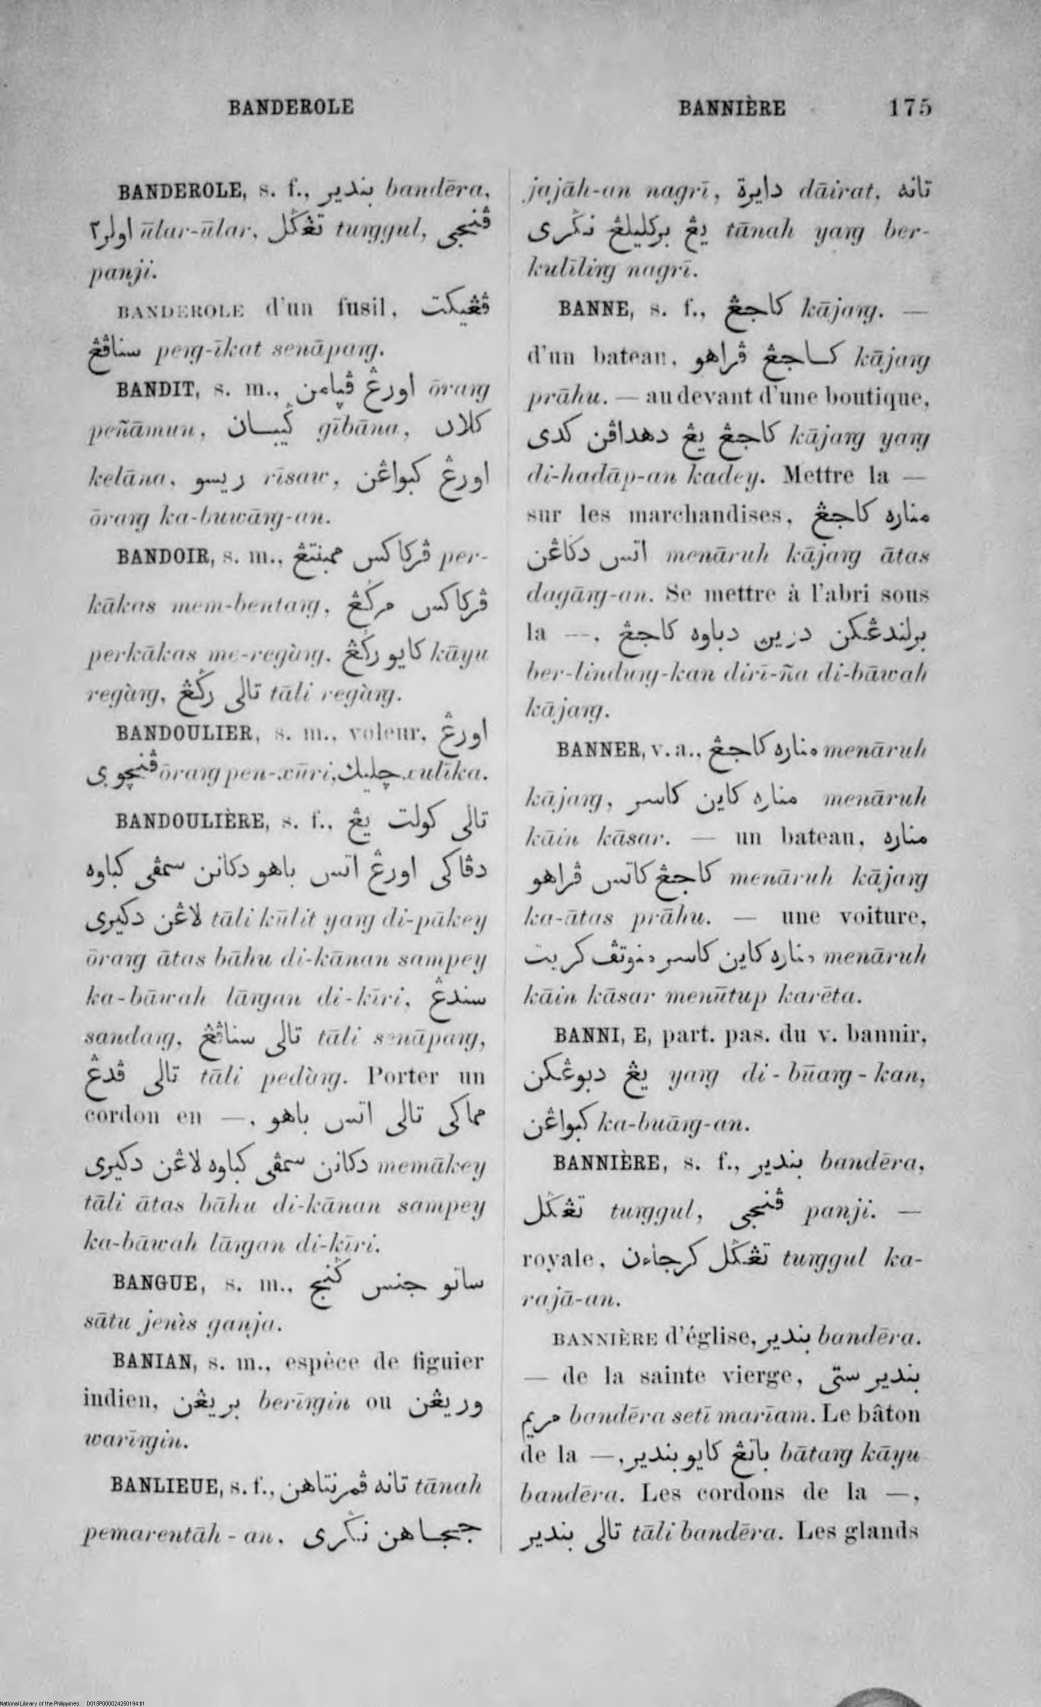 BANDEROLE
BANNIÈRE 175
BANDEROLE, s. f., بندير bandēra,
اولر٢ ūlar-ūlar, تڠݢل tuŋgul, ڤنجي
panji.
BANDEROLE d'un fusil, ڤڠيكت
سناڤڠ peŋ-īkat senāpaŋ.
BANDIT, s. m., اورڠ ڤپامن ōraŋ
peñāmun, ݢيبان gībāna, كلان
kelāna, ريسو rīsaw, اورڠ كبواڠن
ōraŋ ka-buwāŋ-an.
BANDOIR, s. m., ڤركاكس ممبنتڠ per-
kākas mem-bentaŋ, ڤركاكس مرݢڠ
perkākas me-regàŋ, كايو رݢڠ kāyu
regàŋ, تالى رݢڠ tāli regàŋ.
BANDOULIER, s. m., voleur, اورڠ
ڤنچورى ōraŋ pen-xūri, چليك xulīka.
BANDOULIÈRE, s. f., تالى كولت يڠ
دڤاكى اورڠ اتس باهو دكانن سمڤى كباوه
لاڠن دكيرى tāli kūlit yaŋ di-pākey
ōraŋ ātas bāhu di-kānan sampey
ka-bāwah lāŋan di-kīri, سندڠ
sandaŋ, تالى سناڤڠ tāli senāpaŋ,
تالى ڤدڠ tāli pedàŋ. Porter un
cordon en —, مماكى تالى اتس باهو
دكانن سمڤى كباوه لاڠن دكيرى memākey
tāli ātas bāhu di-kānan sampey
ka-bāwah lāŋan di-kīri.
BANGUE, s. m., ساتو جنس ݢنج
sātu jenìs ganja.
BANIAN, s. m., espèce de figuier
indien, بريڠن berīŋin ou وريڠن
warīŋin.
BANLIEUE, s. f., تانه ڤمرنتاهن tānah
pemarentāh-an, ججاهن نݢرى
jajāh-an nagrī, دايرة dāirat, تانه
يڠ بركليلڠ نݢرى tānah yaŋ ber-
kulīliŋ nagrī.
BANNE, s. f., كاجڠ kājaŋ. —
d'un bateau, كاجڠ ڤراهو kājaŋ
prāhu. — au devant d'une boutique,
كاجڠ يڠ دهداڤن كدى kājaŋ yaŋ
di-hadāp-an kadey. Mettre la —
sur les marchandises, مناره كاجڠ
اتس دݢاڠن menāruh kājaŋ ātas
dagāŋ-an. Se mettre à l'abri sous
la —, برلندڠكن دريڽ دباوه كاجڠ
ber-lindung-kan diri-ña di-bāwah
kājaŋ.
BANNER, v. a., مناره كاجڠ menāruh
kājaŋ, مناره كاين كاسر menāruh
kāin kāsar. — un bateau, مناره
كاجڠ كاتس ڤراهو menāruh kājaŋ
ka-ātas prāhu. — une voiture,
مناره كاين كاسر منوتڤ كريت menāruh
kāin kāsar menūtup karēta.
BANNI, E, part. pas. du v. bannir,
يڠ دبوڠكن yaŋ di-būaŋ-kan,
كبواڠن ka-buāŋ-an.
BANNIÈRE, s. f., بندير bandēra,
تڠݢل tuŋgul, ڤنجى panji. —
royale, تڠݢل كرجاءن tuŋgul ka-
rajā-an.
BANNIÈRE d'église, بندير bandēra.
— de la sainte vierge, بندير ستى
مريم bandēra setī marīam. Le bâton
de la —, باتڠ كايو بندير bātaŋ kāyu
bandēra. Les cordons de la —,
تالى بندير tāli bandēra. Les glands
National Library of the Philippines